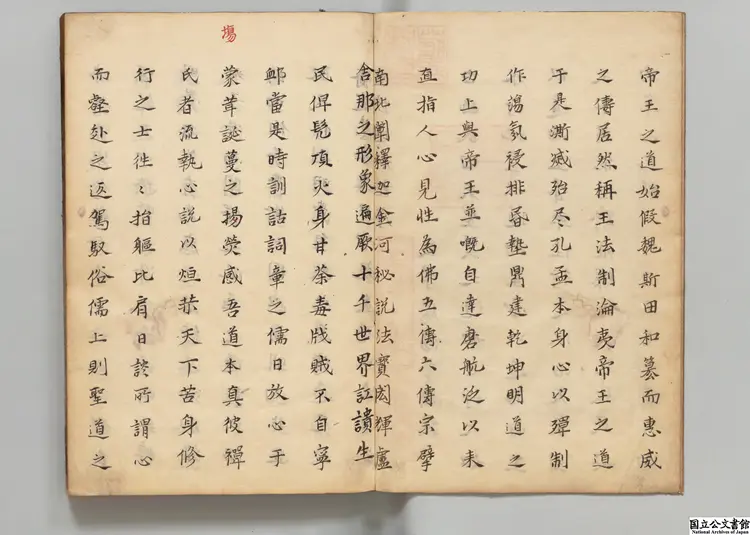 帝王之道始假魏斯田和簒而惠威
之傳居然稱王法制淪夷帝王之道
于是澌烕殆尽孔孟本身心以殫制
作盪氛祲排昏墊鼎建乾坤明道之
功上與帝王並嘅自達磨航泛以来
直指人心見性為佛五傳六傳宗擘
南北闡釋迦金河秘説法寳宏輝盧
舎那之形象遍厥十千世界訌讀生
民俾髡頂火身甘荼毒戕賊不自寧
邮當是時訓詁詞章之儒日放心于
塲
蒙茸誕蔓之揚熒惑吾道本真彼禪
氏者流執心説以烜天下苦身修
行之士徃〻捐軀比肩日談所謂心
而壑赴之返駕馭俗儒上則聖道之
国立公文書館
National Archives of Japan